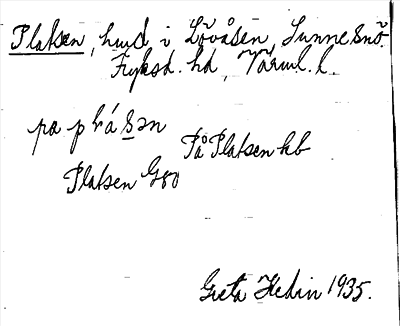 Platsen, hmd i Lövåsen, Sunne snö.
Fryksd. hd, Värml. l.
pa
På Platsen kb
Platsen G80
Greta Hedin 1935.